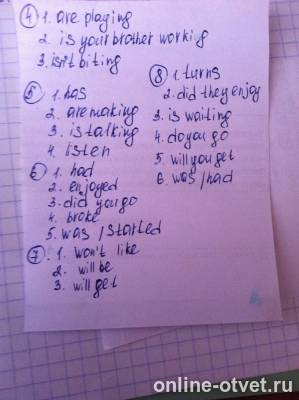 4 1. are playing
2. is your brother working
3. isn't biting
5 1. has
2. are making
3. is talking
4. listen
6 1. had
2. enjoyed
3. did you go
4. broke
5. was / started
7. 1. won't like
2. will be
3. will get
8 1. turns
2. did they enjoy
3. is waiting
4. do you go
5. will you get
6. was / had
online-otvet.ru